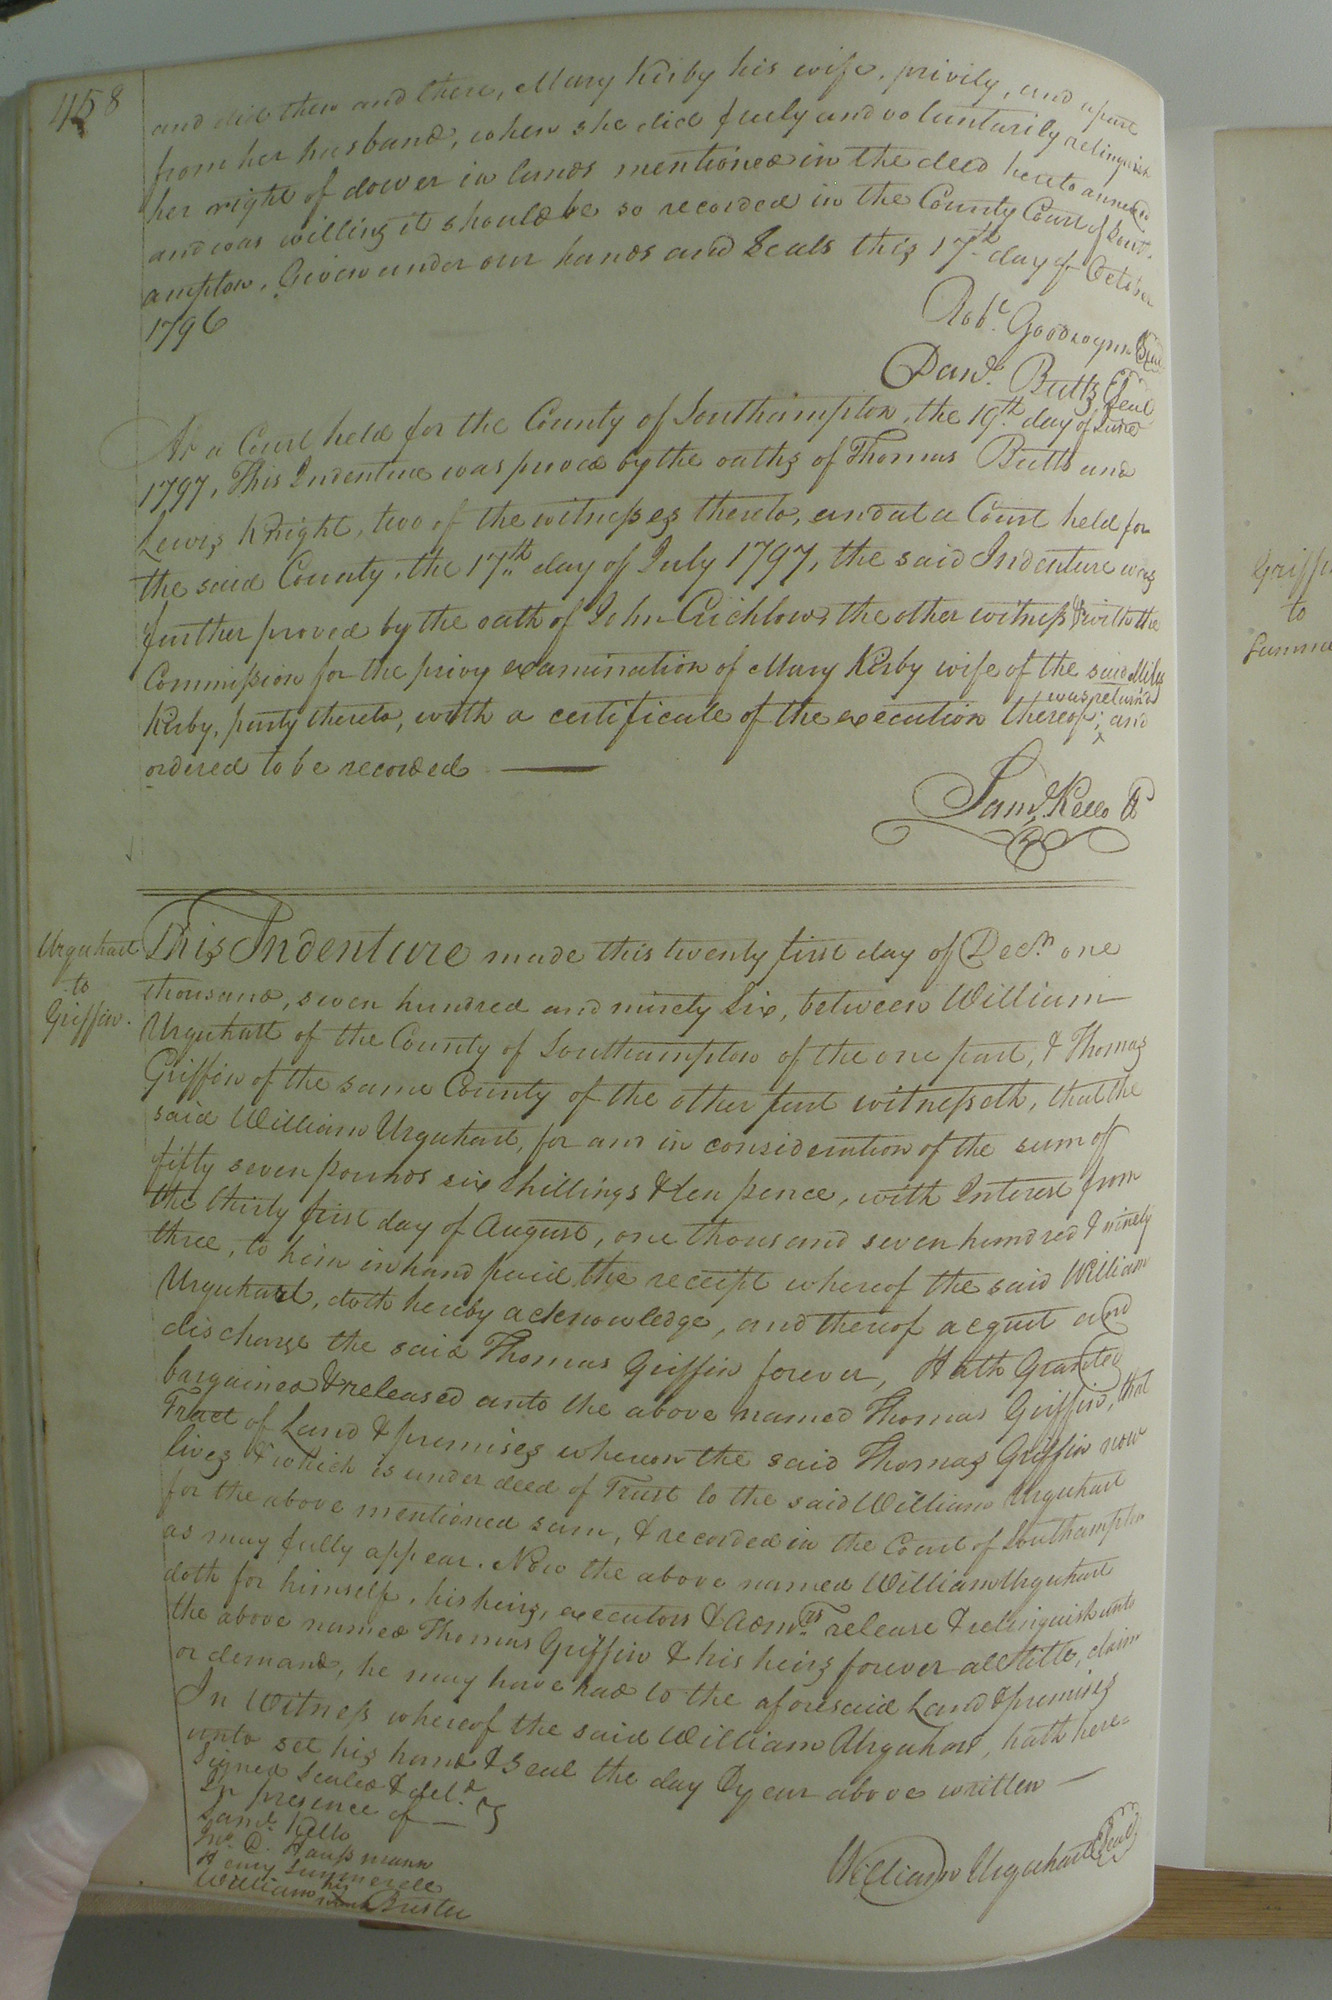 458
and did then and there, Mary Kirby his wife, privily, and apart
from her husband, when she did freely and voluntarily relinquish
her right of dower in lands mentioned in the deed hereto annexed
and was willing it should be so recorded in the County Court of South.
ampton, Given under our hands and Seals this 17th day of October
1796
Robt. Goodwynn Seal
Danl. Butts Seal
At a Court held for the County of Southampton, the 19th day of June
1797, This Indenture was proved by the oaths of Thomas Butts and
Lewis Knight, two of the witnesses thereto, and at a Court held for
the said County, the 17th day of July 1797, the said Indenture was
further proved by the oath of John Crichlow, the other witness & with the
Commission for the privy examination of Mary Kirby wife of the said Miles
was return'd
Kirby, party thereto, with a certificate of the execution thereof; and
ordered to be recorded
Saml. Kello
Urquhart
to
Griffin.
This Indenture made this twenty first day of Decr. one
thousand, seven hundred and ninety Six, between William
Urquhart of the County of Southampton of the one part, & Thomas
Griffin of the same County of the other part witnesseth, that the
said William Urquhart, for and in consideration of the sum of
fifty seven pounds six shillings & ten pence, with Interest from
the thirty first day of August, one thousand seven hundred & ninety
three, to him in hand paid the receipt whereof the said William
Urquhart, doth hereby acknowledge, and thereof acquit and
discharge the said Thomas Griffin forever, Hath Granted
bargained & released unto the above named Thomas Griffin, that
Tract of Land & premises whereon the said Thomas Griffin now
lives & which is under deed of Trust to the said William Urquhart
for the above mentioned sum, & recorded in the Court of Southampton
as may fully appear. Now the above named William Urquhart
doth for himself, his heirs, executors & admrs. release & relinquish unto
the above named Thomas Griffin & his heirs forever all title, claim
or demand, he may have had to the aforesaid Land & premises
In Witness whereof the said William Urquhart, hath here=
unto set his hand & Seal the day & year above written
Signed Sealed & deld.
In presence of
Saml. Kello
Jno. D. Haussmann
Henry Summerell
his
William Buster
mark
William Urquhart Seal
Griffin
to